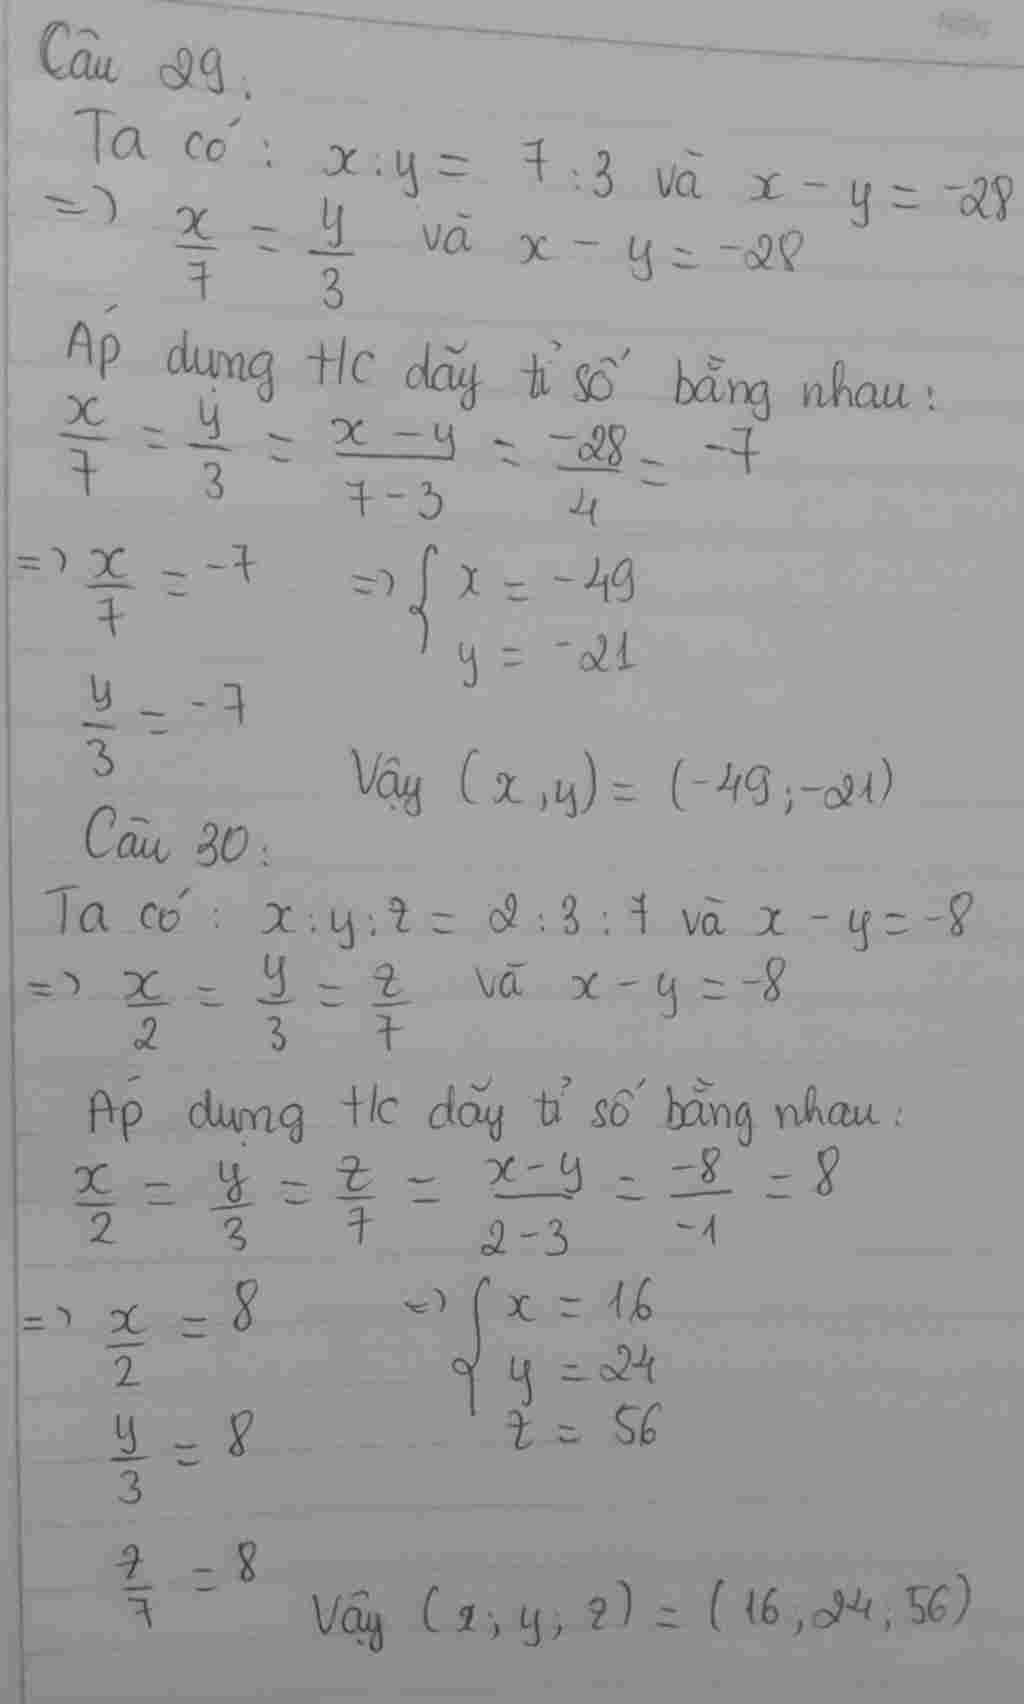 Câu 29:
Ta có: x:y = 7:3 và x - y = -28
=> x/7 = y/3 và x - y = -28
Áp dụng t/c dãy tỉ số bằng nhau:
x/7 = y/3 = (x - y)/(7 - 3) = -28/4 = -7
=> x/7 = -7 => { x = -49
y = -21
y/3 = -7
Vậy (x,y) = (-49;-21)
Câu 30:
Ta có: x:y:z = 2:3:7 và x - y = -8
=> x/2 = y/3 = z/7 và x - y = -8
Áp dụng t/c dãy tỉ số bằng nhau:
x/2 = y/3 = z/7 = (x-y)/(2-3) = -8/-1 = 8
=> x/2 = 8 => { x = 16
y = 24
y/3 = 8 z = 56
z/7 = 8
Vậy (x; y; z) = (16, 24, 56)